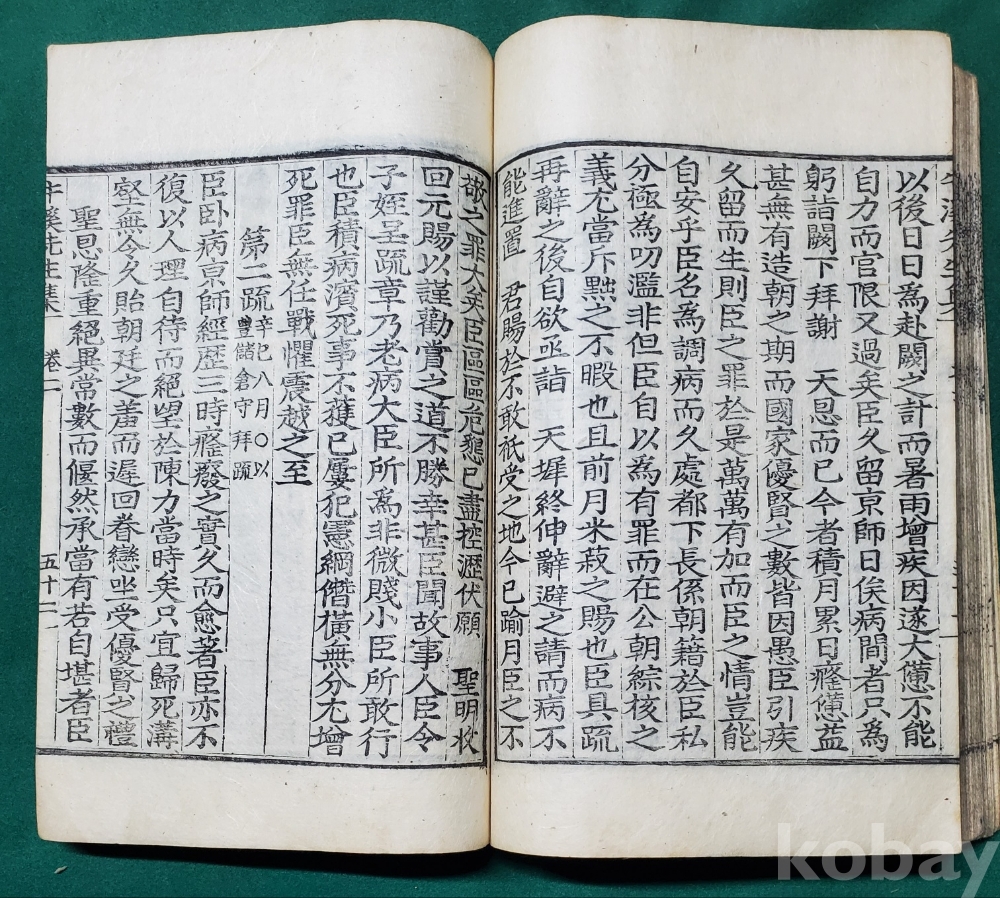 以後日日爲赴闕之計而暑雨增疾因遂大憊不能
自力而官限又過矣臣久留京師日俟病間者只爲
躬詣闕下拜謝 天恩而已今者積月累日癃憊益
甚無有造朝之期而國家優賢之數皆因愚臣引疾
久留而生則臣之罪於是萬萬有加而臣之情豈能
自安乎臣名爲調病而久處都下長係朝籍於臣私
分極爲叨濫非但臣自以爲有罪而在公朝綜核之
義尤當斥黜之不暇也且前月米菽之賜也臣具疏
再辭之後自欲亟詣 天墀終伸辭避之請而病不
能進置 君賜於不敢祇受之地今已踰月臣之不
敬之罪大矣臣區區危懇已盡控瀝伏願 聖明收
回元賜以謹勸賞之道不勝幸甚臣聞故事人臣令
子姪呈疏章乃老病大臣所爲非微賤小臣所敢行
也臣積病濱死事不獲已屢犯憲綱僭橫無分尤增
死罪臣無任戰懼震越之至
第二疏 辛巳八月○以豊儲倉守拜疏
臣卧病京師經歷三時癃癈之實久而愈著臣亦不
復以人理自待而絕望於陳力當時矣只宜歸死溝
壑無令久貽朝廷之羞而遲回眷戀坐受優賢之禮
聖恩隆重絕異常數而偃然承當有若自堪者臣
牛溪先生集 卷二 五十二
kobay